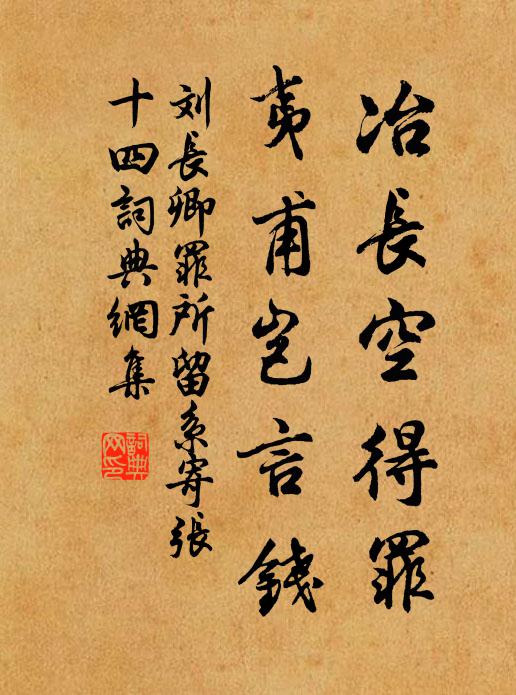 冶長空得罪
夷甫豈言錢
刘長卿罪所留系寄張
十四詞典網集
詞典网印